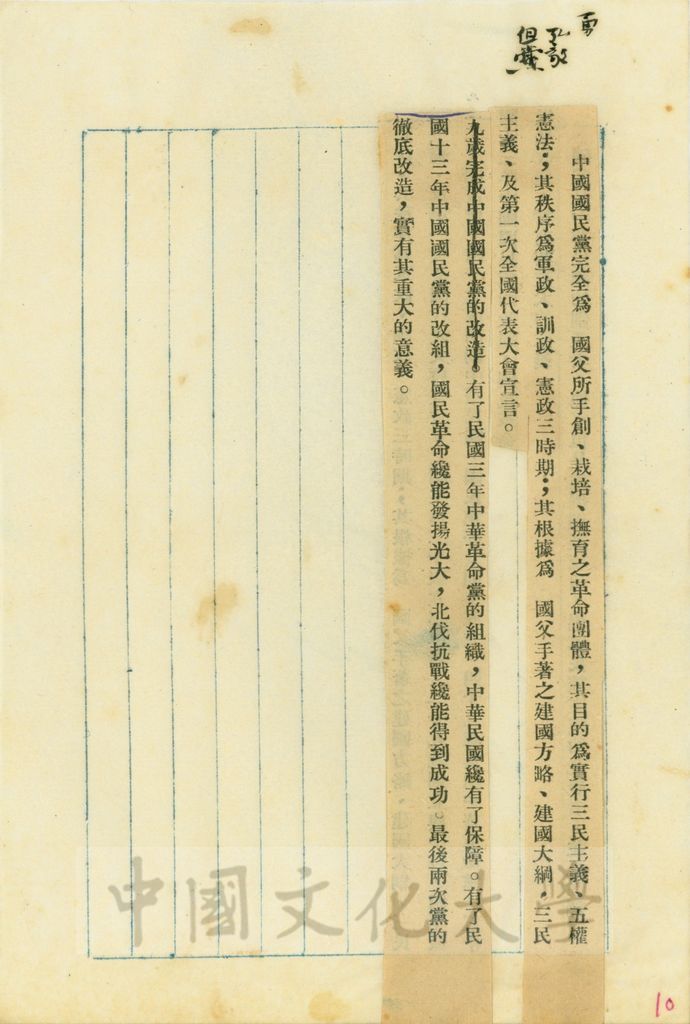 中國國民黨完全爲　國父所手創、栽培、撫育之革命團體，其目的爲實行三民主義、五權
憲法；其秩序爲軍政、訓政、憲政三時期；其根據爲　國父手著之建國方略、建國大綱，三民
主義、及第一次全國代表大會宣言。
九歲完成中國國民黨的改造。有了民國三年中華革命黨的組織，中華民國纔有了保障。有了民
國十三年中國國民黨的改組，國民革命纔能發揚光大，北伐抗戰纔能得到成功。最後兩次黨的
徹底改造，實有其重大的意義。
中國文化大學
10